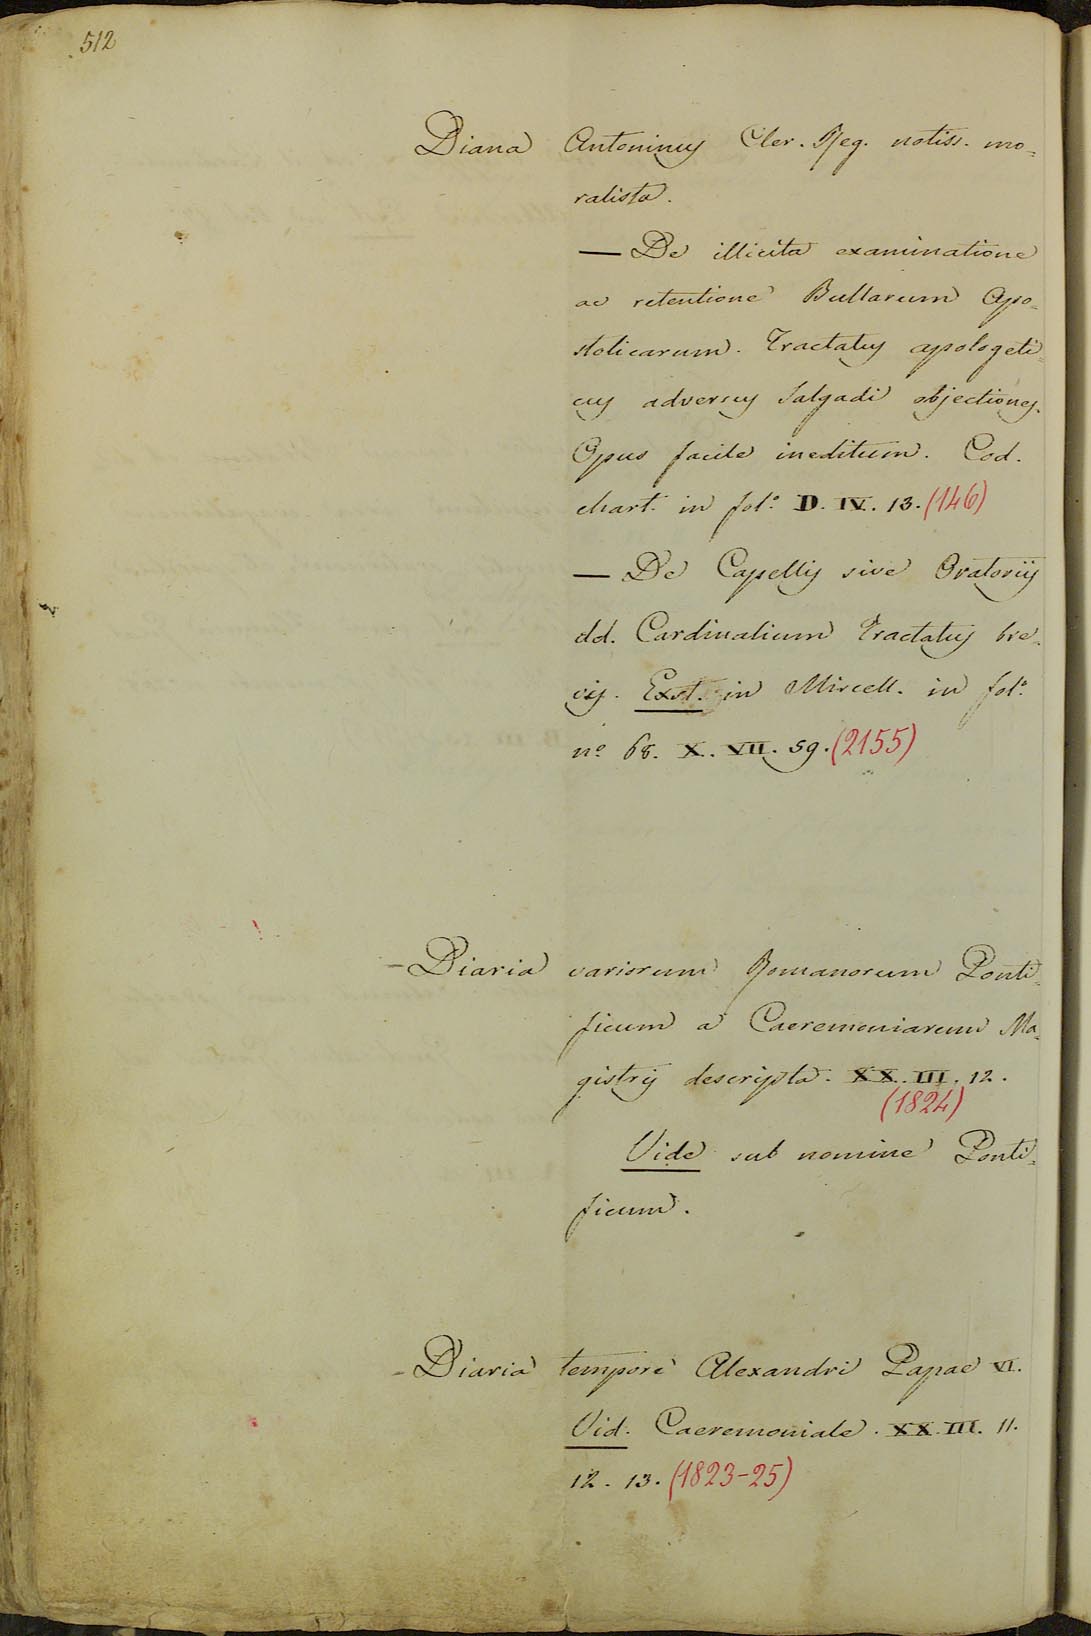 512
Diana Antoninus Cler. Reg. notiss. mo=
ralista.
— De illicita examinatione
ac retentione Bullarum Apo=
stolicarum. Tractatus apologeti=
cus adversus Salgadi objectiones.
Opus facile ineditum. Cod.
chart. in fol.º D. IV. 13. (146)
— De Capellis sive Oratoriis
dd. Cardinalium Tractatus bre=
vis. Exst. in Miscell. in fol.º
nº 68. X. VII. 59. (2155)
- Diaria variorum Romanorum Ponti=
ficum a Caeremoniarum Ma=
gistris descripta. XX. III. 12.
(1824)
Vide sub nomine Ponti=
ficum.
- Diaria tempore Alexandri Papae VI.
Vid. Caeremoniale. XX. III. 11.
12. 13. (1823-25)